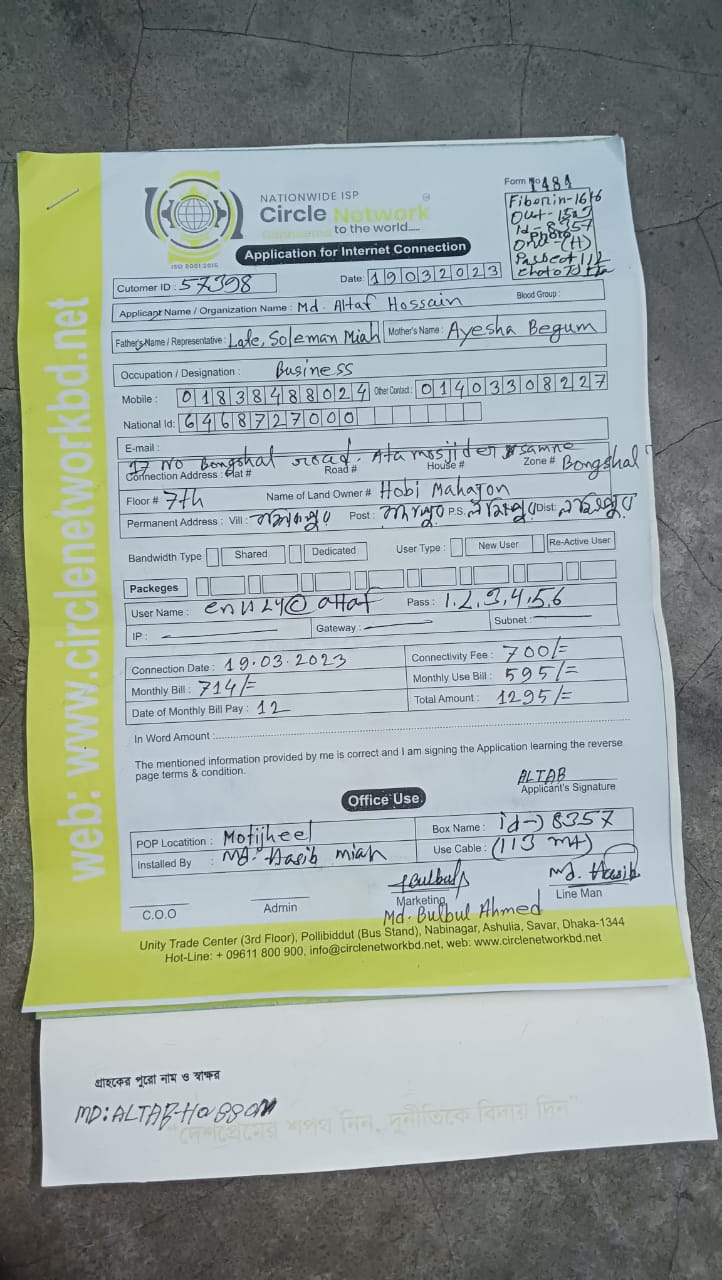 NATIONWIDE ISP
Circle Network
Connected to the world.....
ISO 9001:2015
Form No 1484
Fiberin-16+6
Out-
Id-8357
Onu-(H)
Application for Internet Connection
Cutomer ID : 57398
Date: 19032023
Applicant Name / Organization Name : Md. Altaf Hossain
Blood Group :
Father's Name / Representative : Late, Soleman Miah
Mother's Name : Ayesha Begum
Occupation / Designation : Business
Mobile : 01838488024 Other Contact : 01403308227
National Id: 6468727000
E-mail :
17 No Bongshal road. Ata mosjider samne Bongshal
Connection Address : Flat # Road # House # Zone #
Floor # 7th Name of Land Owner # Hobi Mahajon
Permanent Address : Vill : Post : P.S. Dist:
Bandwidth Type Shared Dedicated User Type : New User Re-Active User
Packeges
User Name : Pass : 1.2.3.4.5.6
IP : Gateway : Subnet :
Connection Date : 19.03.2023 Connectivity Fee : 700/=
Monthly Bill : 714/= Monthly Use Bill : 595/=
Date of Monthly Bill Pay : 12 Total Amount : 1295/=
In Word Amount :
The mentioned information provided by me is correct and I am signing the Application learning the reverse
page terms & condition.
ALTAB
Applicant's Signature
Office Use.
POP Locatition : Motijheel Box Name : id-> 8357
Installed By : Md. Hasib miah Use Cable : (113 mt)
Md. Hasib
C.O.O Admin Marketing Line Man
Md. Bulbul Ahmed
Unity Trade Center (3rd Floor), Pollibiddut (Bus Stand), Nabinagar, Ashulia, Savar, Dhaka-1344
Hot-Line: + 09611 800 900, info@circlenetworkbd.net, web: www.circlenetworkbd.net
web: www.circlenetworkbd.net
গ্রাহকের পুরো নাম ও স্বাক্ষর
MD:ALTAB-HOSSAIN
“দেশপ্রেমের শপথ নিন, দুর্নীতিকে বিদায় দিন”